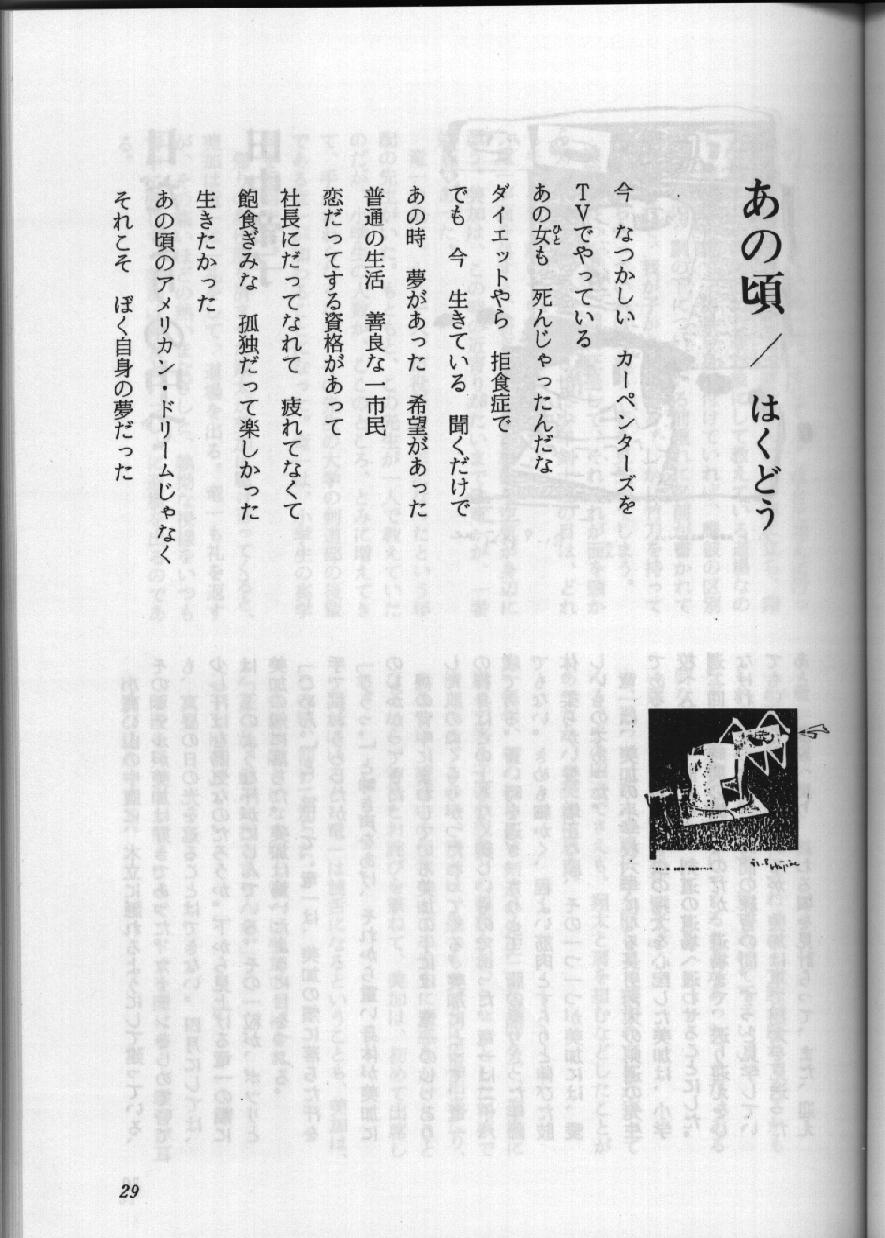 あの頃／はくどう
今　なつかしい　カーペンターズを
TVでやっている
あの女も　死んじゃったんだな
ひと
ダイエットやら　拒食症で
でも　今　生きている　聞くだけで
あの時　夢があった　希望があった
普通の生活　善良な一市民
恋だってする資格があって
社長にだってなれて　疲れてなくて
飽食ぎみな　孤独だって楽しかった
生きたかった
あの頃のアメリカン・ドリームじゃなく
それこそ　ぼく自身の夢だった
29